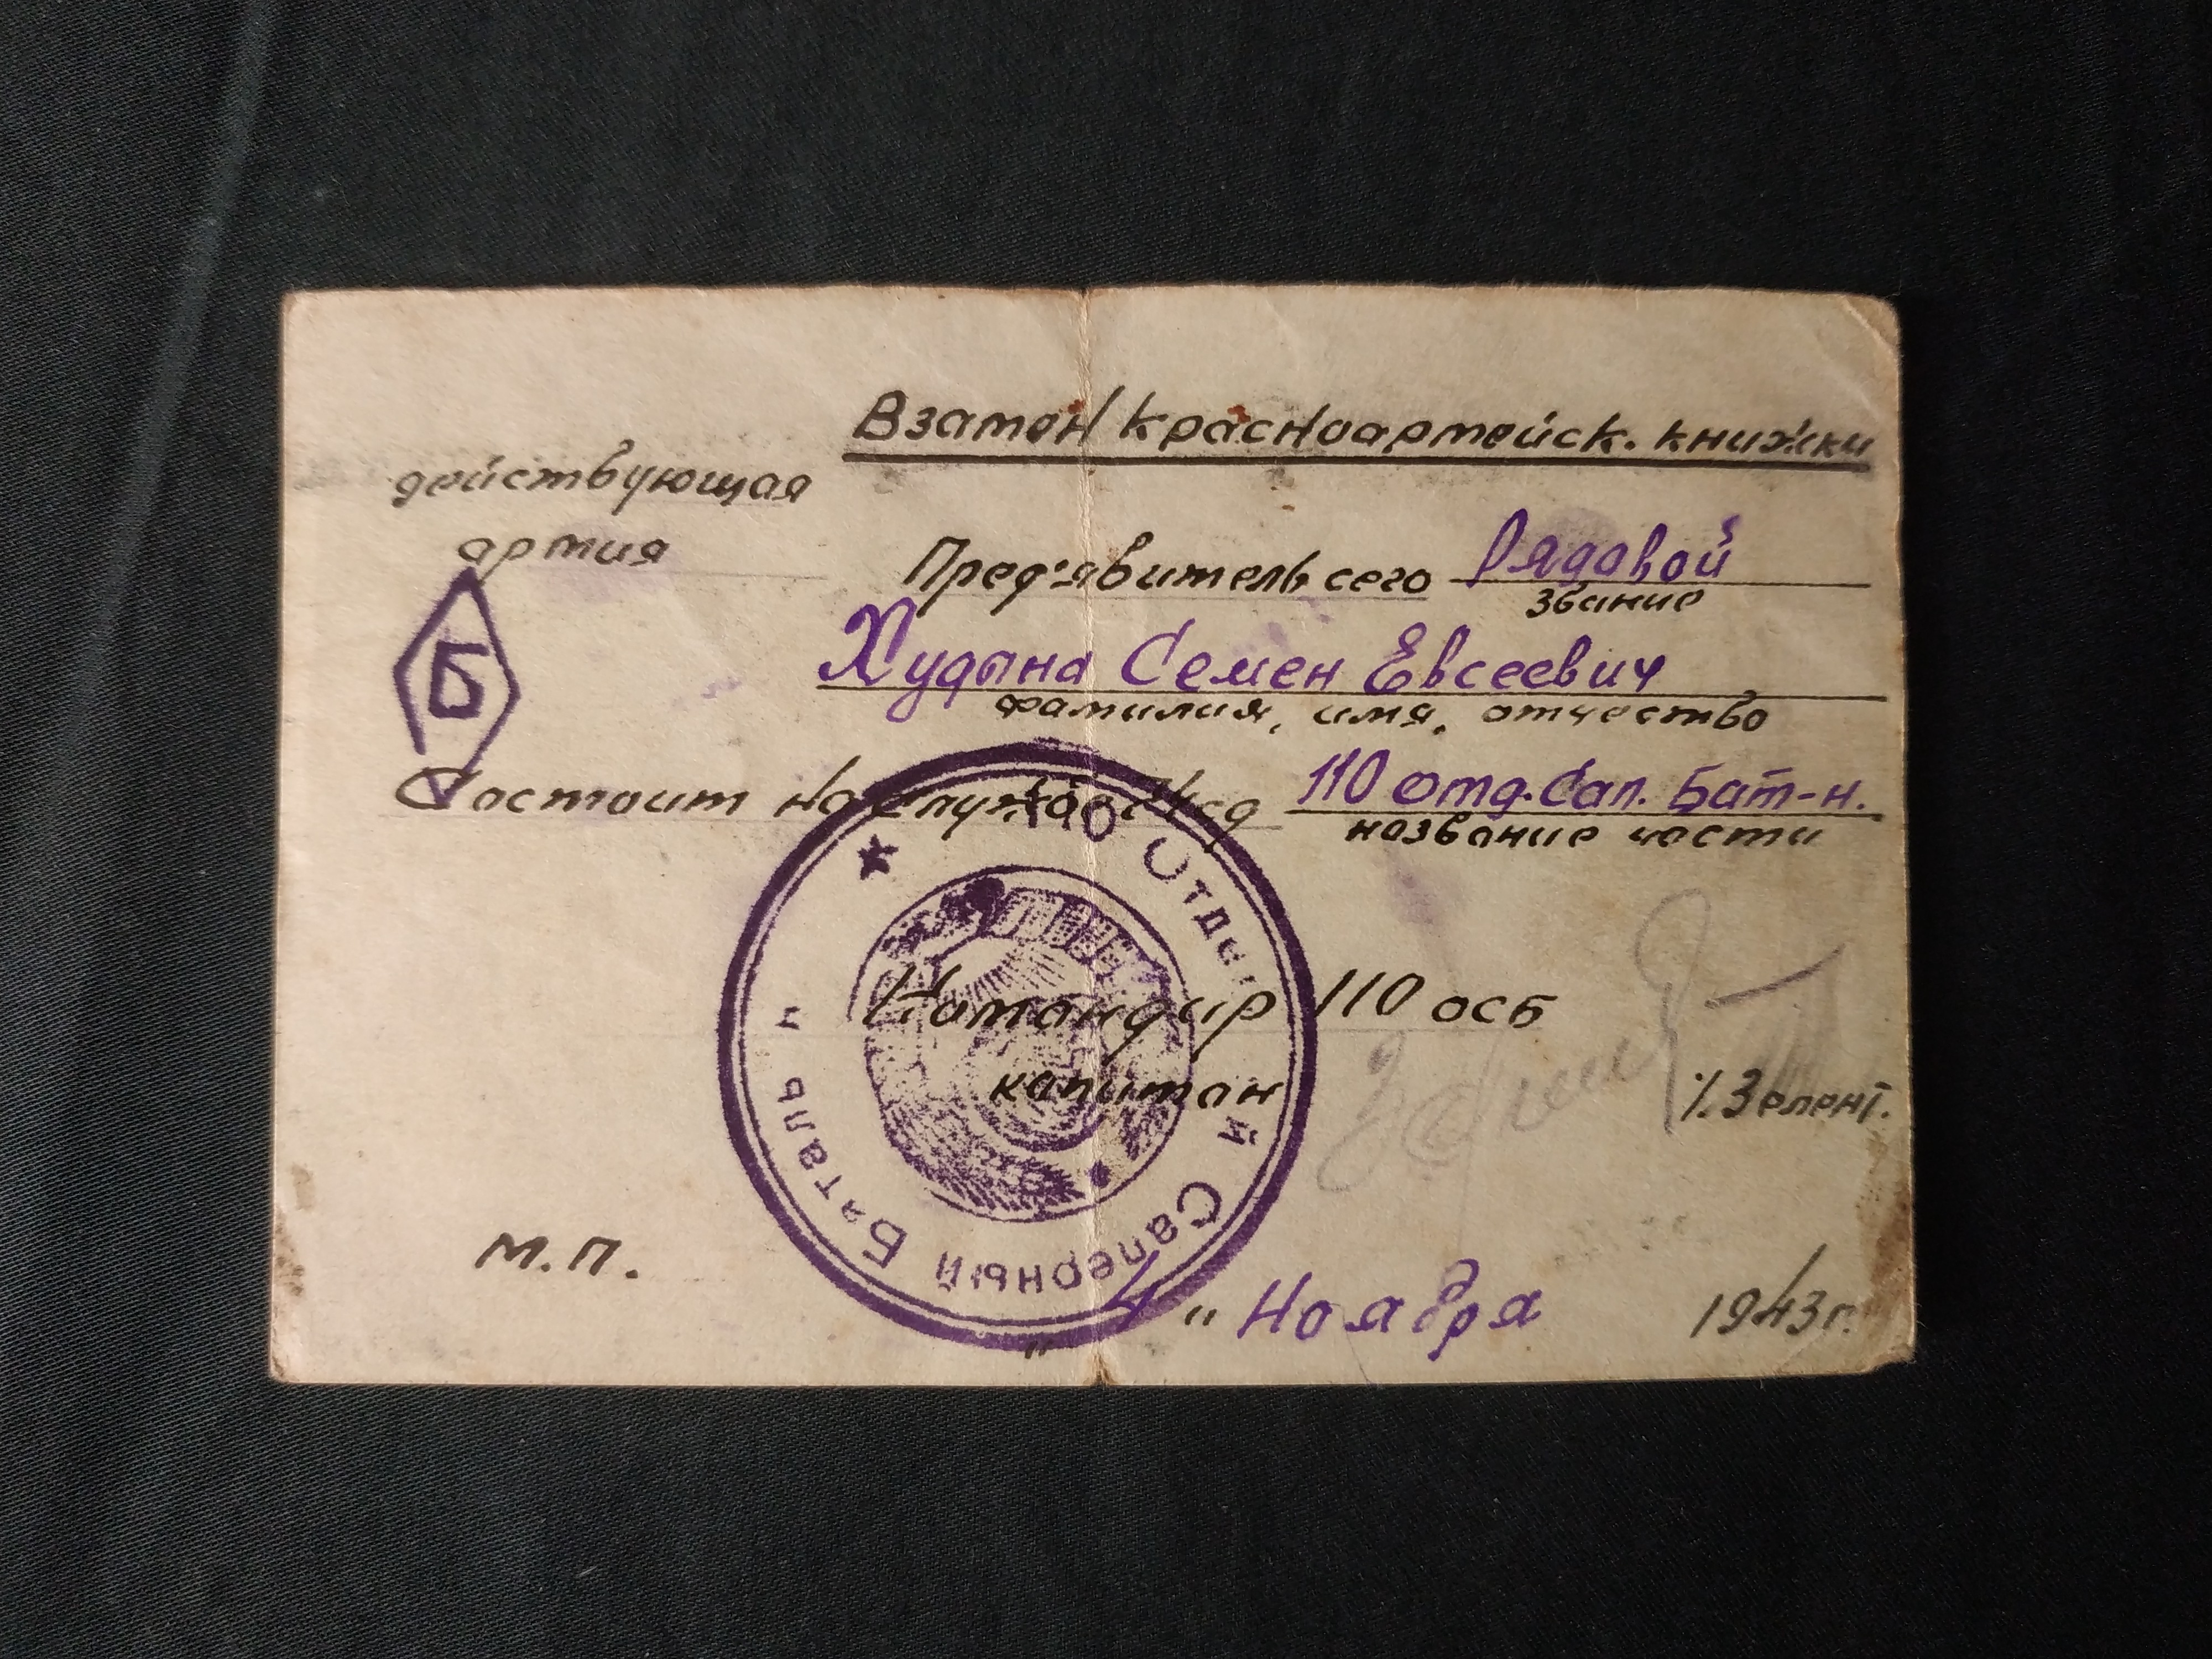 Взамен красноармейск. книжки
действующая
армия
Б
Пред'явитель сего Рядовой
звание
Худына Семен Евсеевич
фамилия, имя, отчество
Состоит на службе 74 сд 110 отд. Сап. Бат-н.
название части
★ 110 Отдел й Саперный Баталь н
Командир 110 осб
капитан /.Зелент.
М.П.
" 4 " Ноября 1943 г.